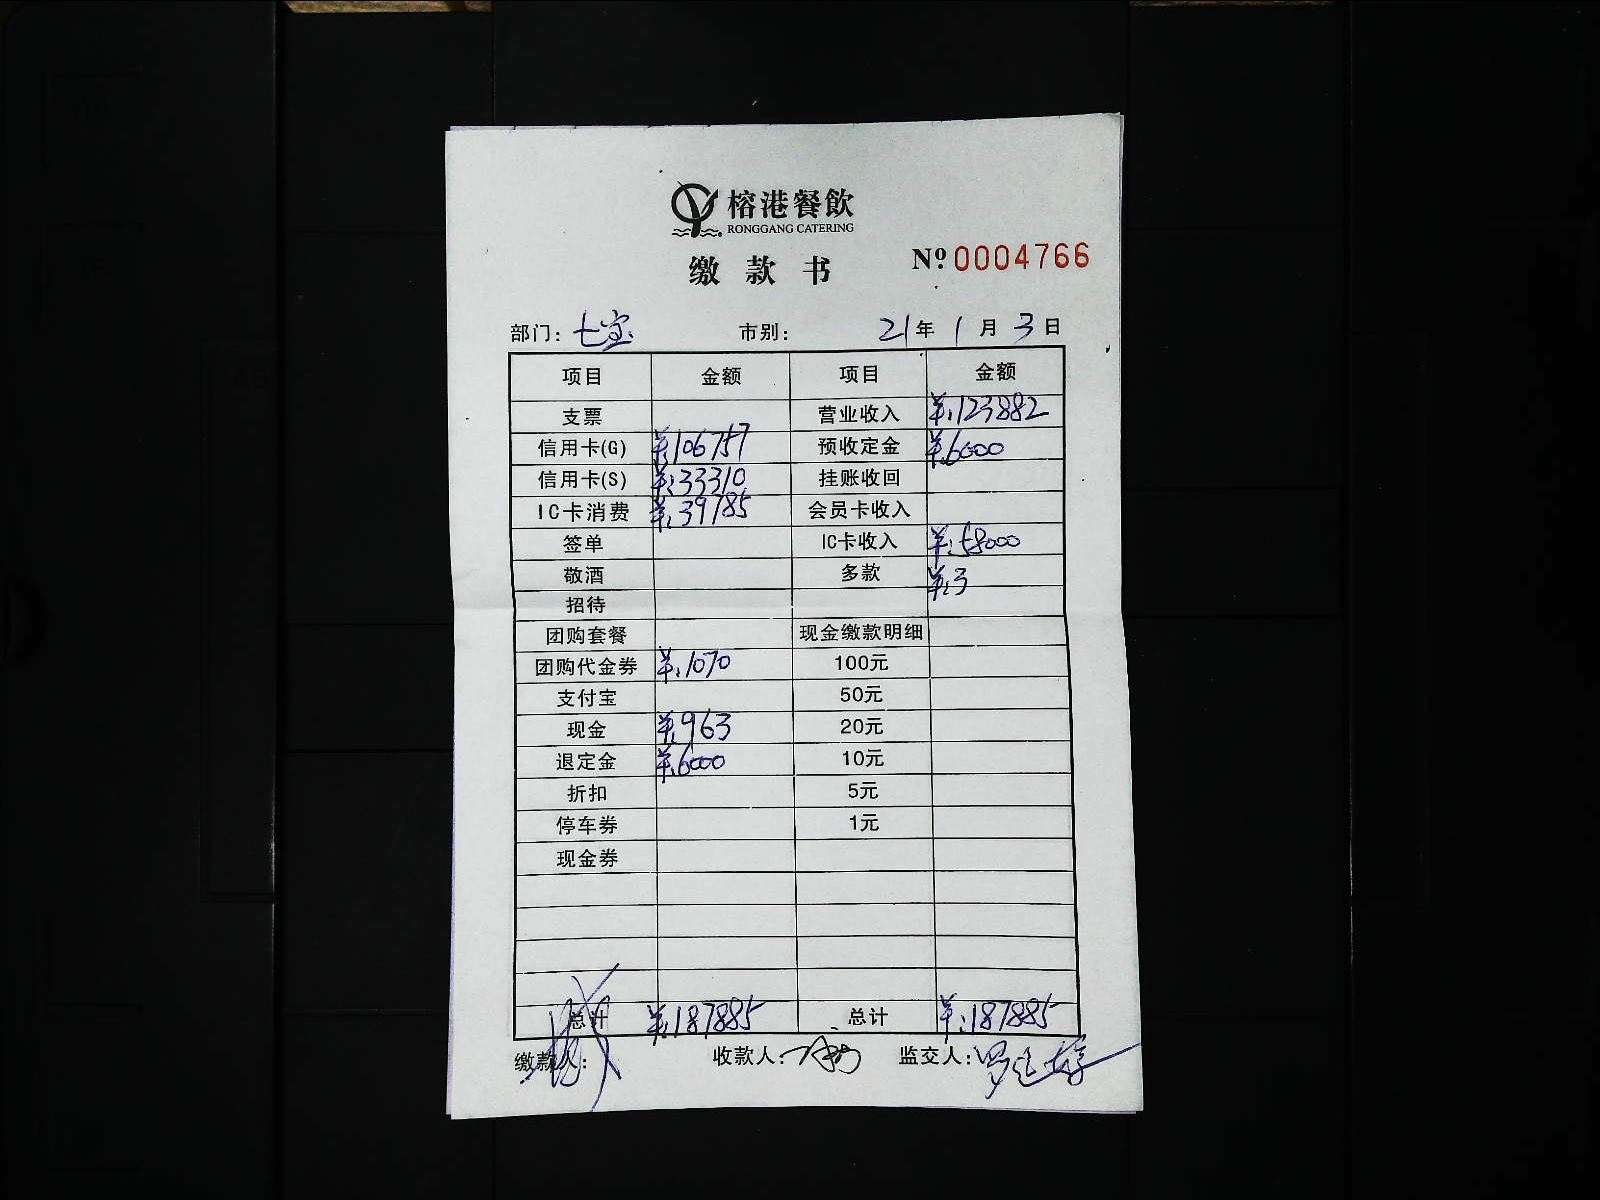 榕港餐飲
RONGGANG CATERING
缴款书
Nº.0004766
部门: 七宝 市别: 21年1月3日
项目 金额 项目 金额
支票 营业收入 ¥:123882
信用卡(G) ¥:106757 预收定金 ¥:6000
信用卡(S) ¥:33310 挂账收回
IC卡消费 ¥:39785 会员卡收入
签单 IC卡收入 ¥:58000
敬酒 多款 ¥:3
招待
团购套餐 现金缴款明细
团购代金券 ¥:1070 100元
支付宝 50元
现金 ¥:963 20元
退定金 ¥:6000 10元
折扣 5元
停车券 1元
现金券
总计 ¥:187885 总计 ¥:187885
缴款人: 收款人: 监交人: